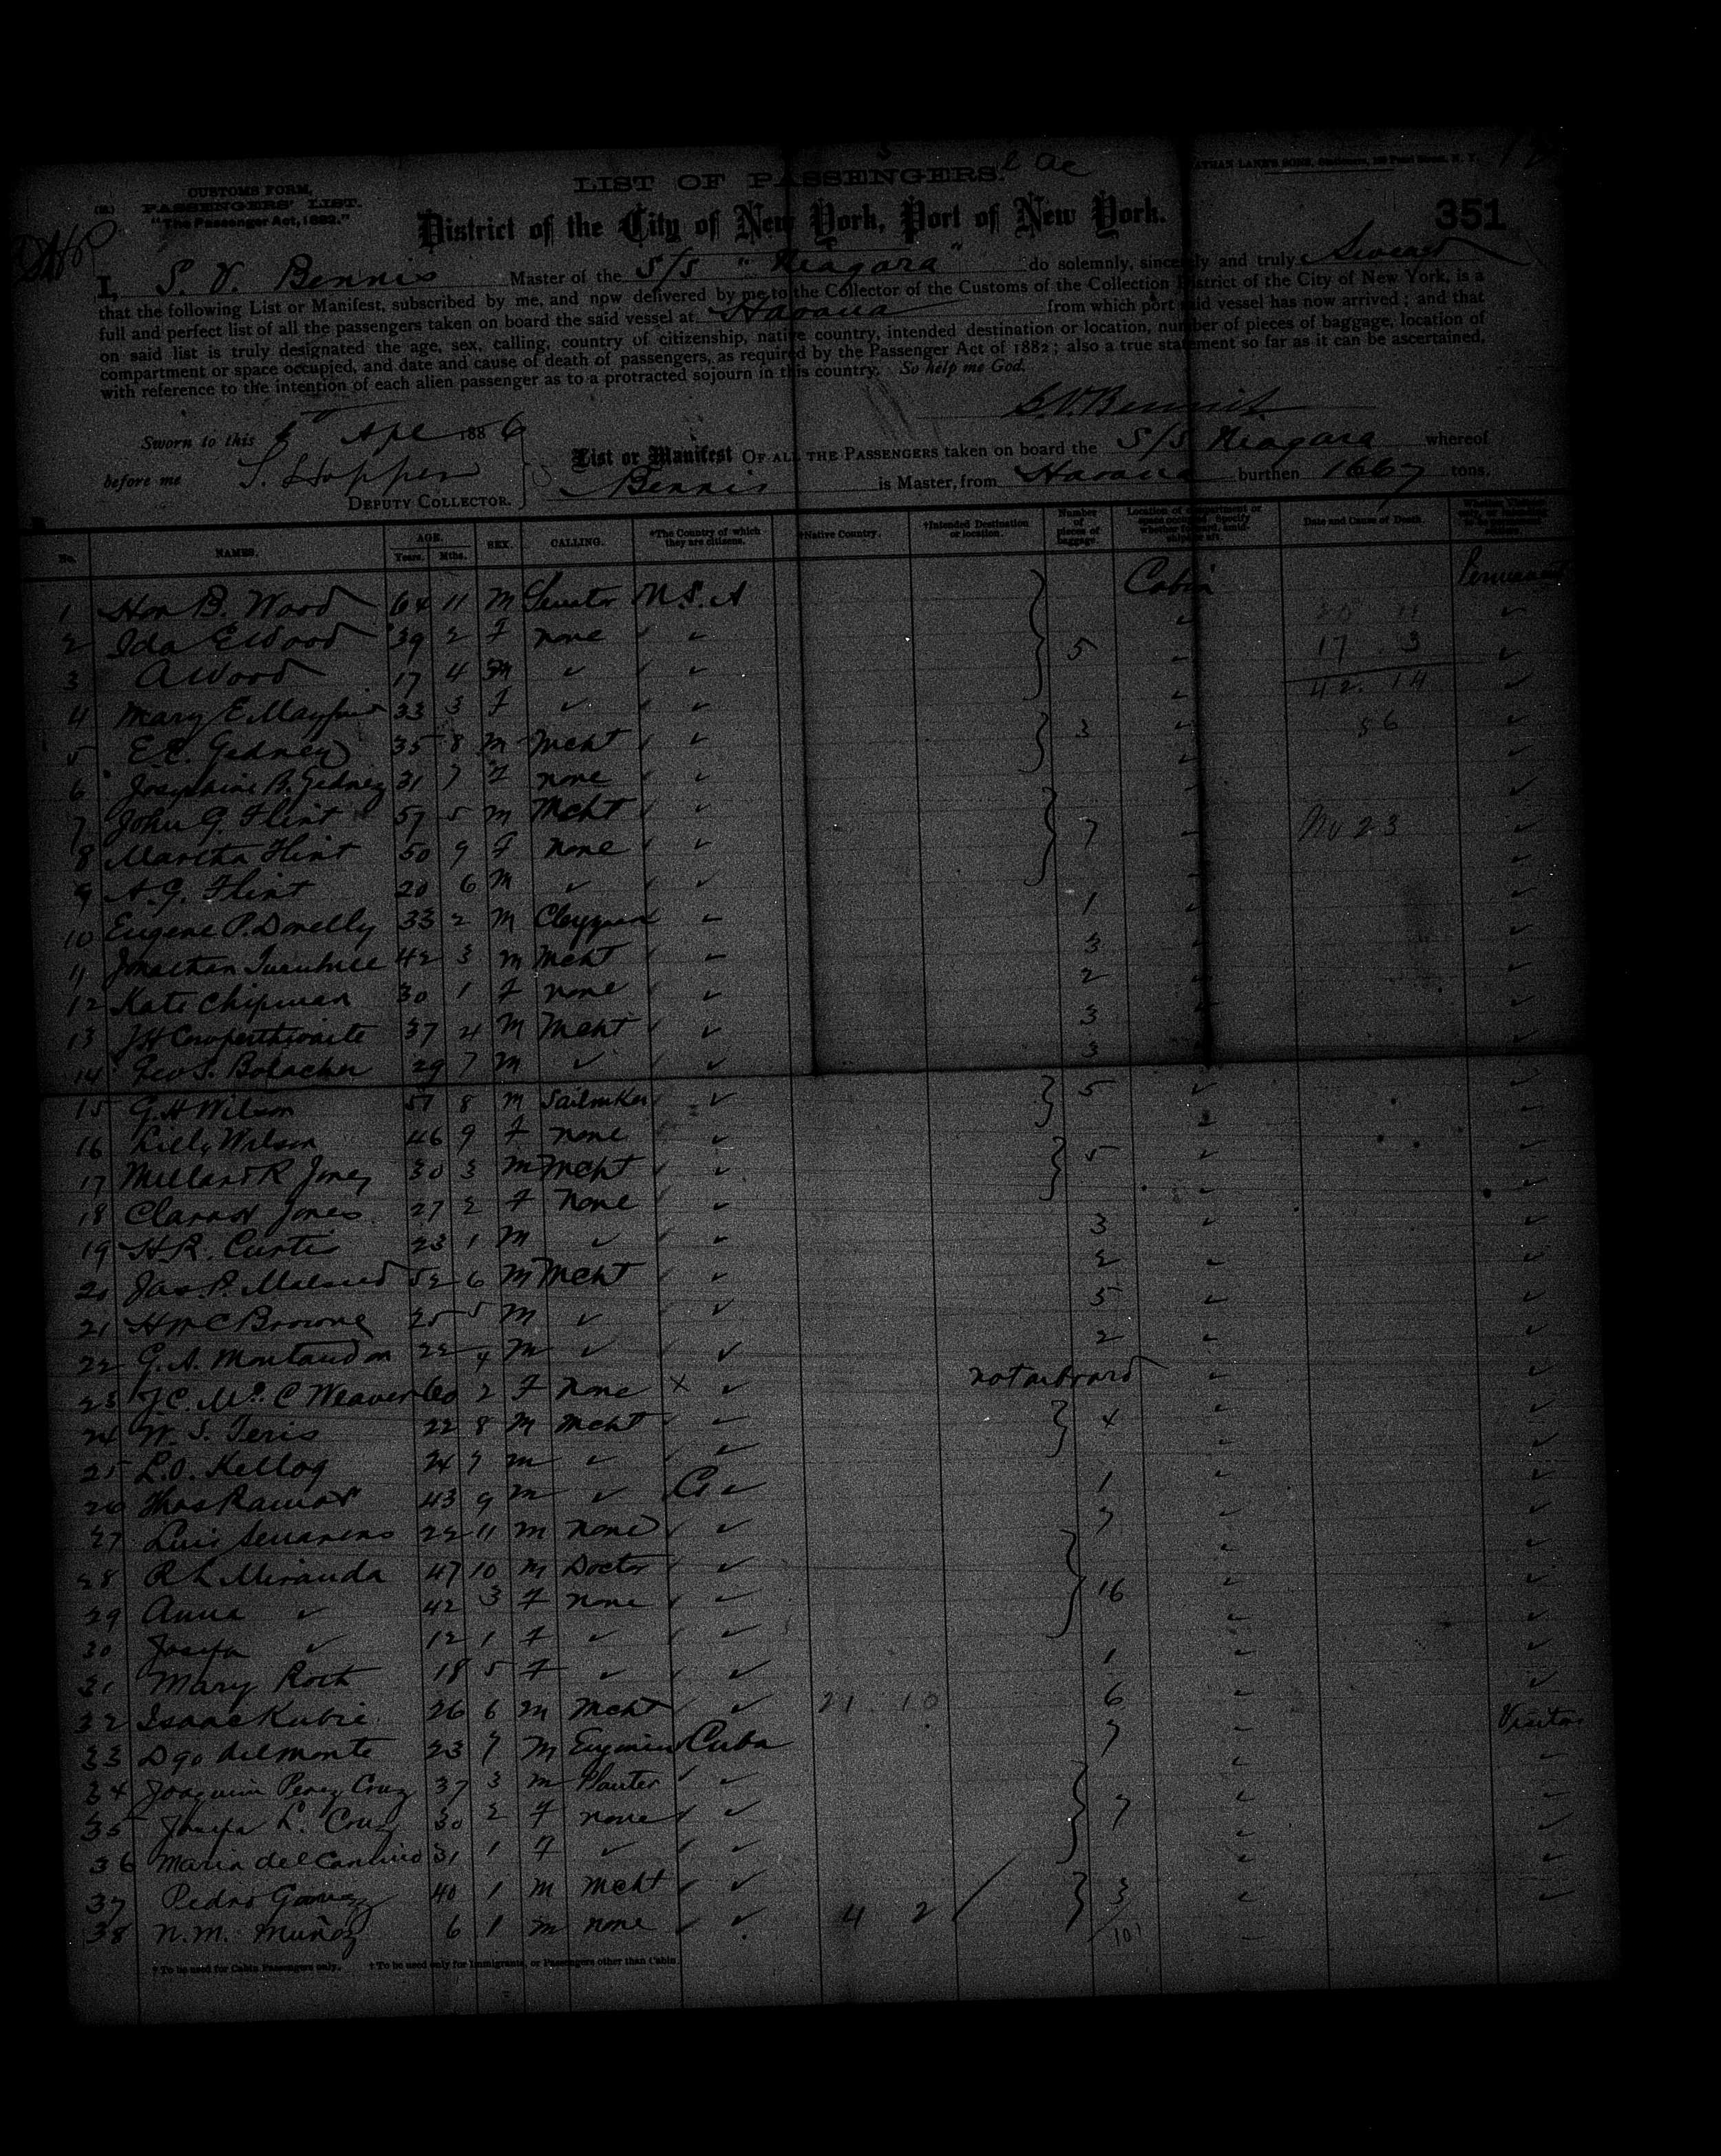 LIST OF PASSENGERS.
CUSTOMS FORM,
PASSENGERS' LIST.
"The Passenger Act, 1882."
District of the City of New York, Port of New York.
351
I, S. V. Bennis Master of the S/S "Niagara" do solemnly, sincerely and truly Swear
that the following List or Manifest, subscribed by me, and now delivered by me to the Collector of the Customs of the Collection District of the City of New York, is a
full and perfect list of all the passengers taken on board the said vessel at Havana from which port said vessel has now arrived; and that
on said list is truly designated the age, sex, calling, country of citizenship, native country, intended destination or location, number of pieces of baggage, location of
compartment or space occupied, and date and cause of death of passengers, as required by the Passenger Act of 1882; also a true statement so far as it can be ascertained,
with reference to the intention of each alien passenger as to a protracted sojourn in this country. So help me God.
S.V. Bennis
Sworn to this Apl 1886
before me S. Hopper
DEPUTY COLLECTOR.
List or Manifest OF ALL THE PASSENGERS taken on board the S/S Niagara whereof
Bennis is Master, from Havana burthen 1667 tons.
No. NAMES. AGE. Years. Mths. SEX. CALLING. *The Country of which they are citizens. †Native Country. †Intended Destination or location. Number of pieces of baggage. Location of compartment or space occupied. Date and Cause of Death.
1 Hon B. Wood 64 11 M Senator U.S.A Cabin Permanent
2 Ida E Wood 39 2 F none ✓
3 A Wood 17 4 ✓ ✓ 5 17 3
4 Mary E. 33 3 F ✓ ✓ 42. 14
5 E.C. Gedney 35 8 M Mcht ✓ 3 56
6 Josephine B. Gedney 31 7 F none ✓
7 John G. Flint 57 5 M Mcht ✓
8 Martha Flint 50 9 F none ✓ 7
9 A.G. Flint 20 6 M ✓ ✓
10 Eugene P. Donelly 33 2 M ✓ 1
11 Jonathan 42 3 M Mcht ✓ 3
12 Kate Chipman 30 1 F none ✓ 2
13 J H Cowperthwaite 37 4 M Mcht ✓ 3
14 Geo S. 29 7 M ✓ ✓ 3
15 G.H Wilson 57 8 M Sailmker ✓ 5
16 Lilly Wilson 46 9 F none ✓
17 Millard R Jones 30 3 M Mcht ✓ 5
18 Clara Jones 27 2 F none ✓
19 H.R. Curtis 23 1 M ✓ ✓ 3
20 Jas. P. 52 6 M Mcht ✓ 2
21 H Mc C Browne 25 5 M ✓ ✓ 5
22 G.A. Montaudon 22 4 M ✓ ✓ 2
23 J.C. Mc. C Weaver 60 2 F none X ✓ not aboard
24 W. S. Teris 22 8 M Mcht ✓ 4
25 L.O. Kellog 24 7 M ✓ ✓
26 Thos 43 9 M ✓ ✓ 1
27 Luis 22 11 M none ✓ 7
28 R L Miranda 47 10 M Doctor ✓
29 Anna ✓ 42 3 F none ✓ 16
30 Josefa ✓ 12 1 F ✓ ✓
31 Mary Roth 18 5 F ✓ ✓ 1
32 Isaac Kubie 26 6 M Mcht ✓ 21 10 6
33 Dgo del Monte 23 7 M Cuba 7 Visitor
34 Joaquin Perez Cruz 37 3 M Planter ✓
35 Josefa L. Cruz 30 2 F none ✓ 7
36 Maria del 31 1 F ✓ ✓
37 Pedro 40 1 M Mcht ✓ 3
38 N.M. Muñoz 6 1 M none ✓ 4 2 101
* To be used for Cabin Passengers only. † To be used only for Immigrants, or Passengers other than Cabin.